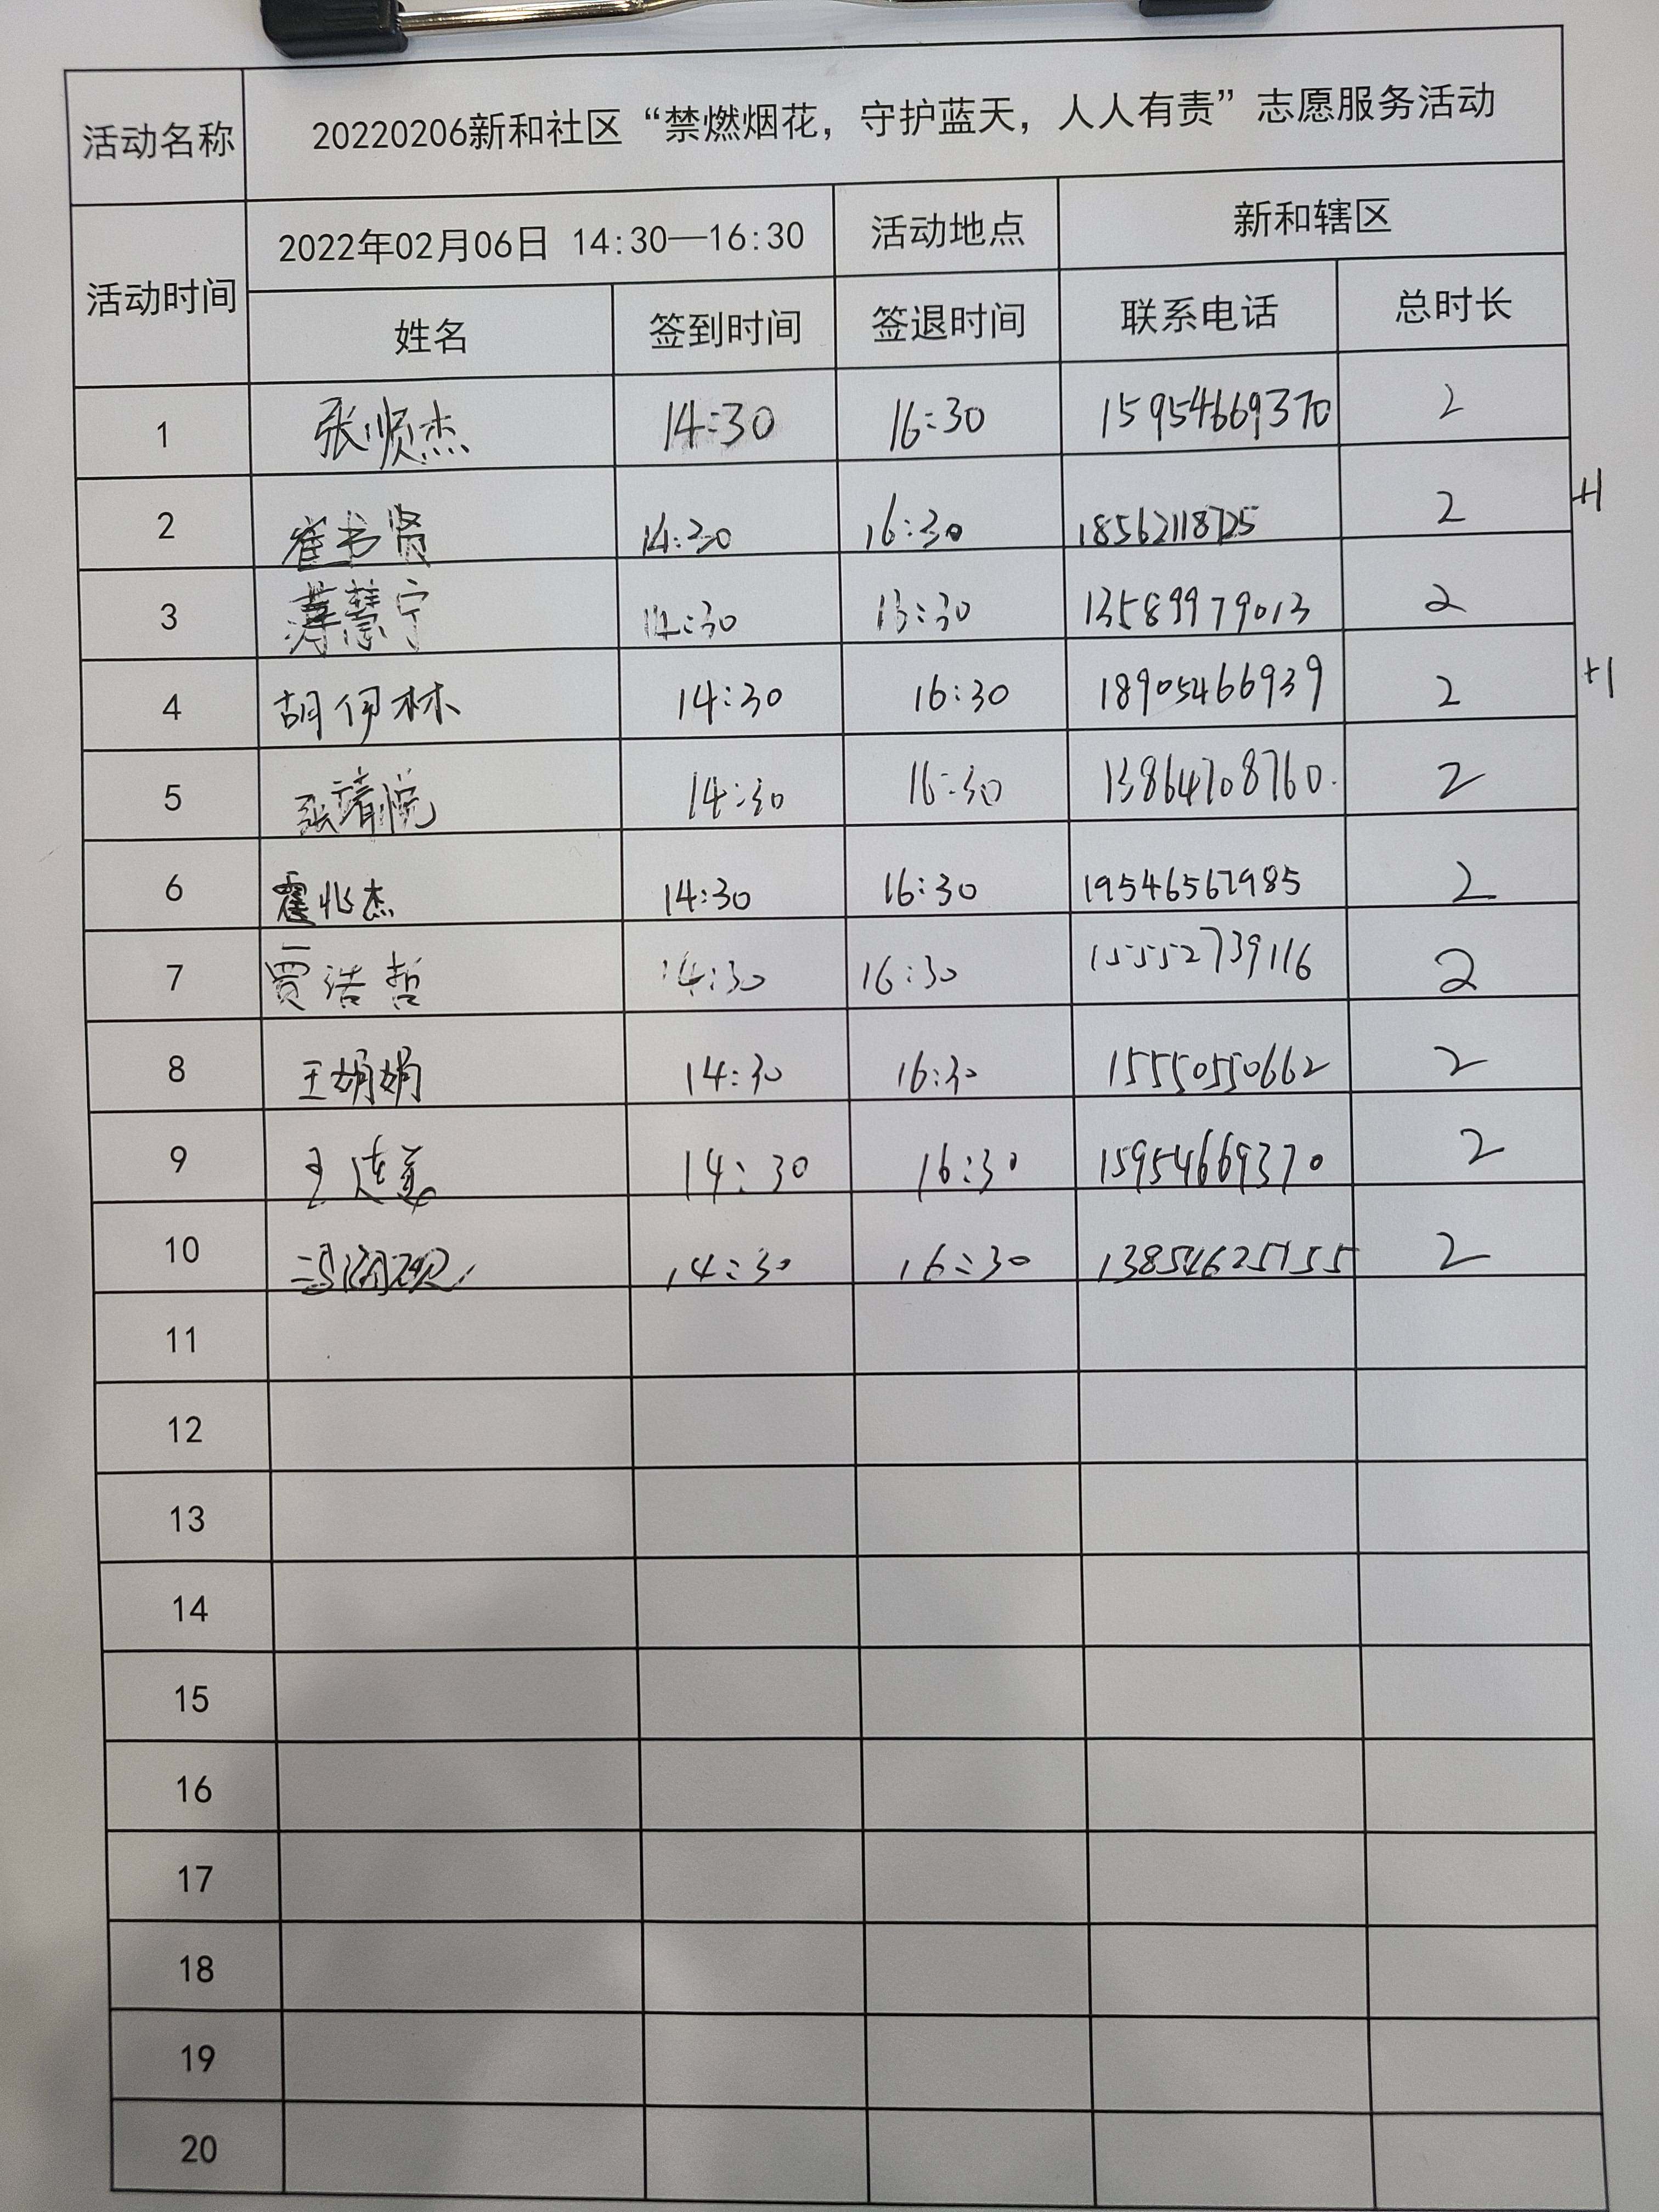 活动名称 20220206新和社区“禁燃烟花，守护蓝天，人人有责”志愿服务活动
活动时间 2022年02月06日 14:30—16:30 活动地点 新和辖区
姓名 签到时间 签退时间 联系电话 总时长
1 张顺杰 14:30 16:30 15954669370 2
2 崔书贤 14:30 16:30 18562118725 2 +1
3 薄慧宁 14:30 16:30 13589979013 2
4 胡伊林 14:30 16:30 18905466939 2 +1
5 张靖悦 14:30 16:30 13864708760 2
6 霍兆杰 14:30 16:30 19546562985 2
7 贾浩哲 14:30 16:30 15552739116 2
8 王娟娟 14:30 16:30 15550550662 2
9 王连美 14:30 16:30 15954669370 2
10 14:30 16:30 13854625155 2
11
12
13
14
15
16
17
18
19
20